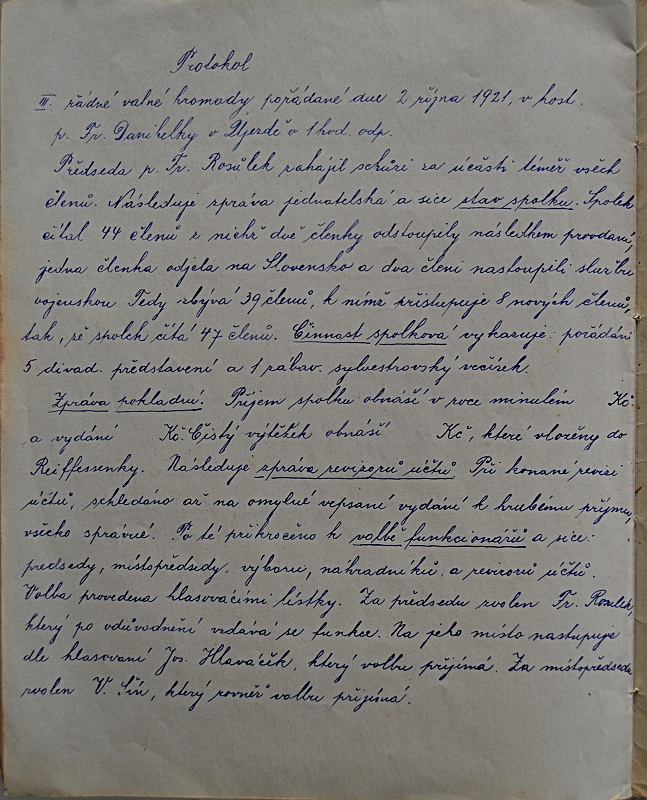 Protokol
III. řádné valné hromady pořádané dne 2 října 1921, v host.
p. Fr. Danihelky v Újezdě o 1 hod. odp.
Předseda p. Fr. Rosůlek zahájil schůzi za účasti téměř všech
členů. Následuje zpráva jednatelská a sice stav spolku. Spolek
čítal 44 členů z nichž dvě členky odstoupily následkem provdaní,
jedna členka odjela na Slovensko a dva členi nastoupili službu
vojenskou Tedy zbývá 39 členů, k nimž přistupuje 8 nových členů,
tak, že spolek čítá 47 členů. Činnost spolková vykazuje: pořádání
5 divad. představení a 1 zábav. sylvestrovský večírek.
Zpráva pokladní. Příjem spolku obnáší v roce minulém Kč
a vydání Kč. Čistý výtěžek obnáší Kč, které vloženy do
Reiffessenky. Následuje zpráva revizorů účtů. Při konane revisi
účtů, schledáno až na omylné vepsaní vydání k hrubému příjmu,
všecko správné. Po té přikročeno k volbě funkcionářů a sice:
predsedy, místopředsedy, výboru, náhradníků, a revizorů účtů.
Volba provedena hlasovácími lístky. Za předsedu zvolen Fr. Rosulek,
který po odůvodnění vzdává se funkce. Na jeho místo nastupuje
dle hlasovaní Jos. Hlaváček, který volbu přijímá. Za místopředsedu
zvolen V. Šír, který rovněž volbu přijímá.